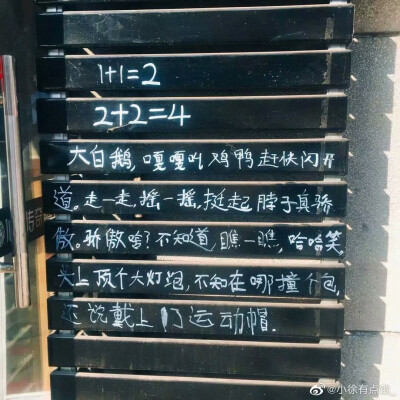 1+1=2
2+2=4
大白鹅,嘎嘎叫 鸡鸭赶快闪开
道。走一走,摇一摇,挺起脖子真骄
傲。骄傲啥?不知道,瞧一瞧,哈哈笑
头上顶个大灯泡,不知在哪撞个包,
还说戴上了运动帽.
传奇
@小徐有点